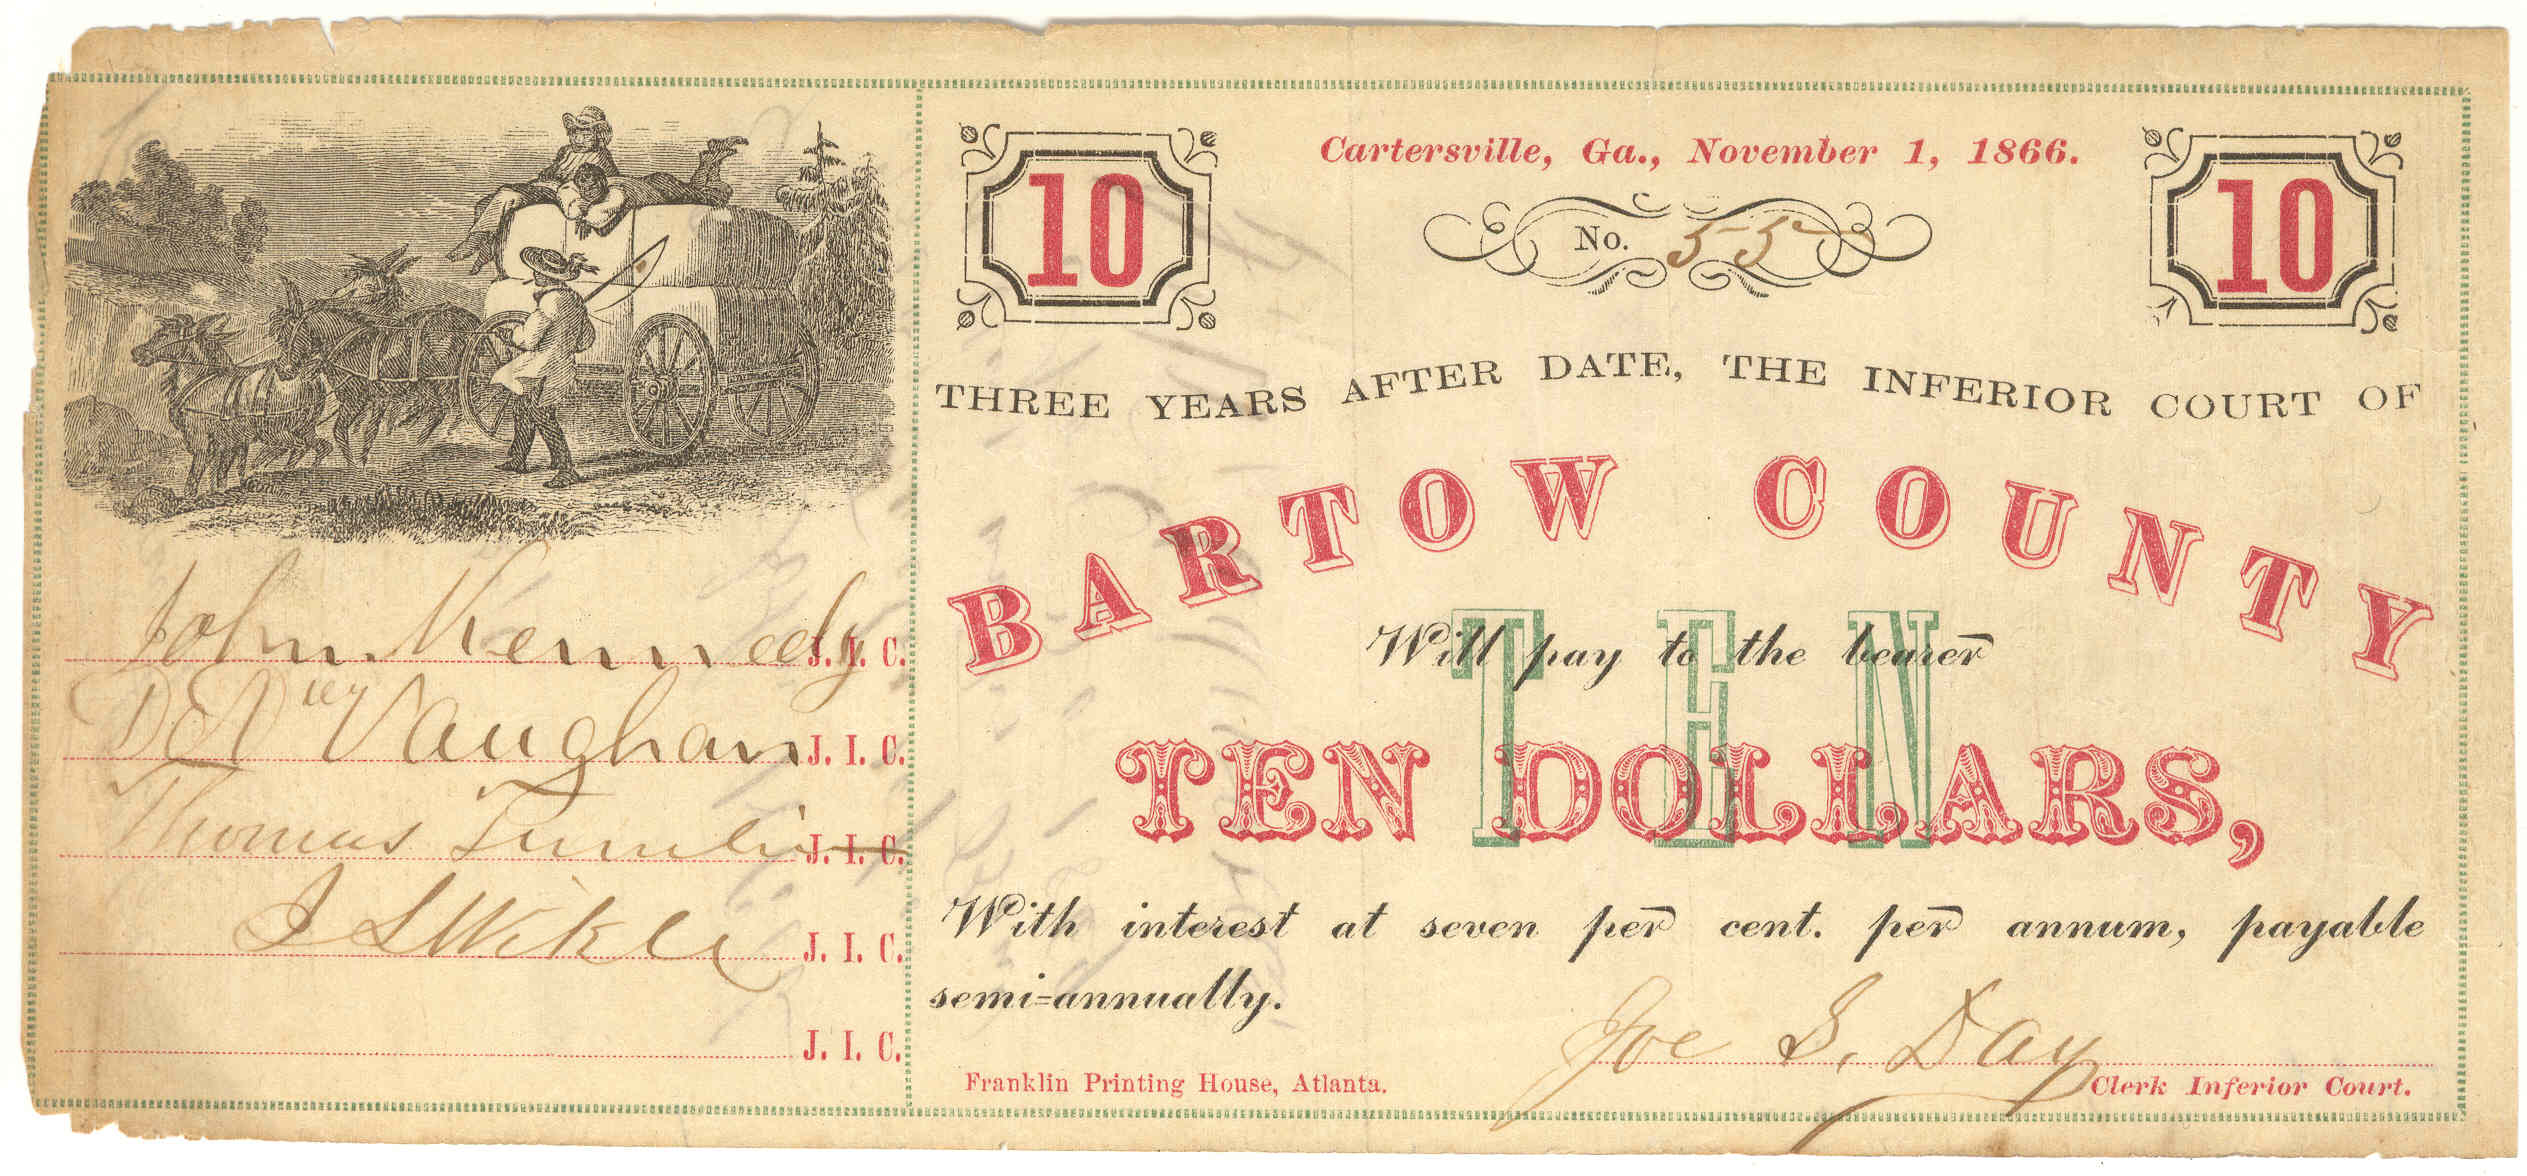 John Kennedy J. I. C.
Vaughan J. I. C.
Thomas Tumlin J. I. C.
J. I. C.
J. I. C.
10
Cartersville, Ga., November 1, 1866.
10
No. 55
THREE YEARS AFTER DATE, THE INFERIOR COURT OF
BARTOW COUNTY
TEN
Will pay to the bearer
TEN DOLLARS,
With interest at seven per cent. per annum, payable
semi-annually.
Joe S. Day
Franklin Printing House, Atlanta.
Clerk Inferior Court.